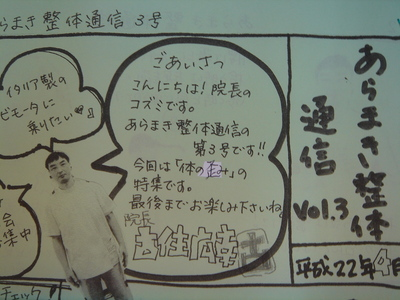 あらまき整体通信 3号
あらまき整体
通信
Vol.3
平成22年4月
ごあいさつ
こんにちは!院長の
コズミです。
あらまき整体通信の
第3号です!!
今回は「体の歪み」の
特集です。
最後までお楽しみ下さいね。
院長
イタリア製の
ビモータに
乗りたい
会
集中
チェック